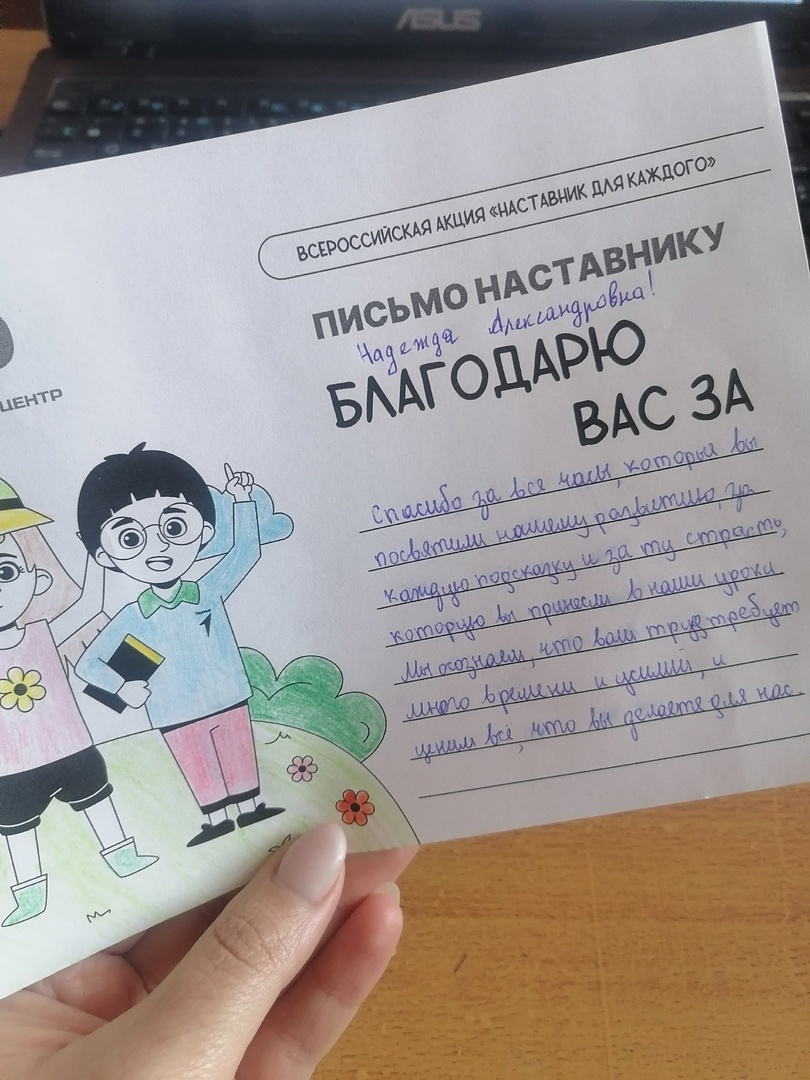 ASUS
ВСЕРОССИЙСКАЯ АКЦИЯ «НАСТАВНИК ДЛЯ КАЖДОГО»
ПИСЬМО НАСТАВНИКУ
Надежда Александровна!
БЛАГОДАРЮ
ВАС ЗА
ЦЕНТР
Спасибо за все часы, которые вы
посвятили нашему развитию, за
каждую подсказку и за ту страсть,
которую вы принесли в наши уроки
Мы осознаем, что ваш труд требует
много времени и усилий, и
ценим всё, что вы делаете для нас.